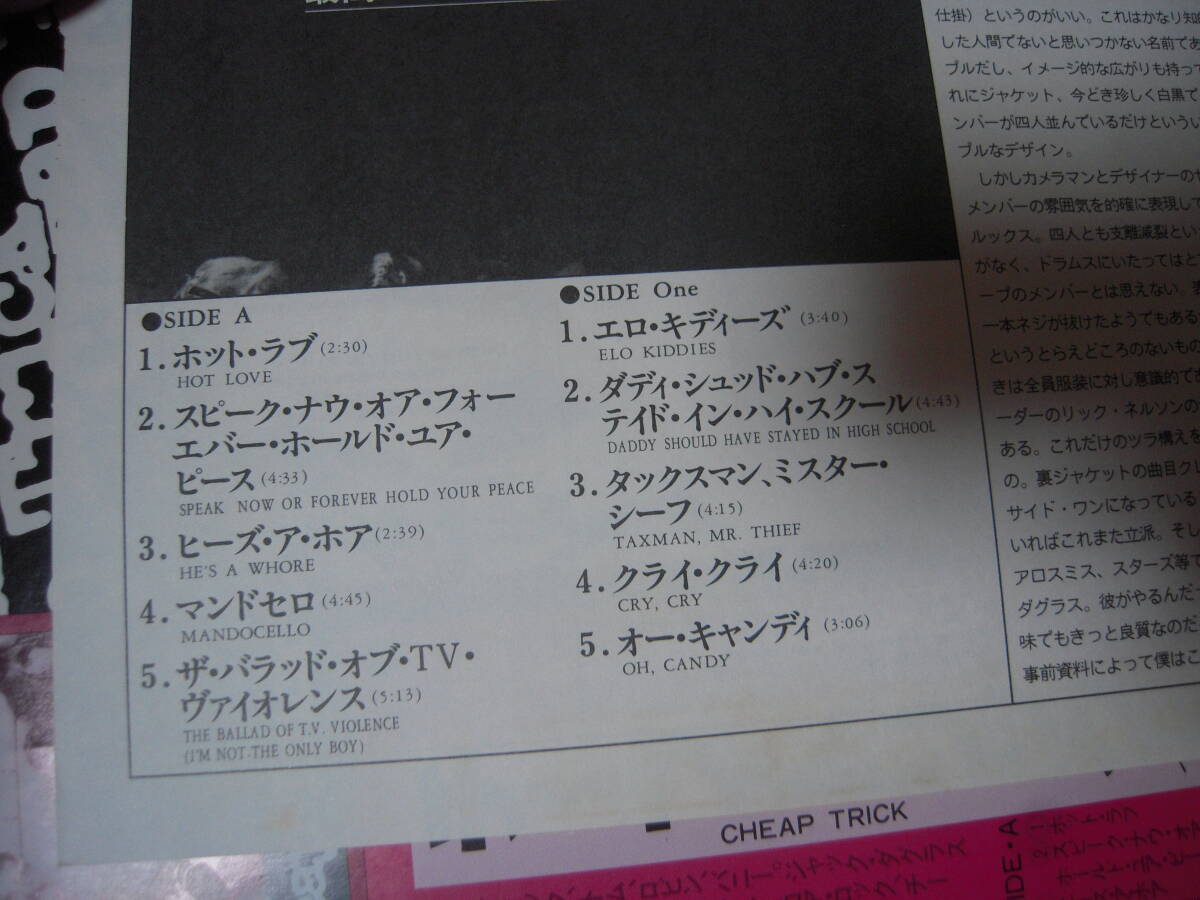 ●SIDE A
1.ホット・ラブ(2:30)
HOT LOVE
2.スピーク・ナウ・オア・フォー
エバー・ホールド・ユア・
ピース(4:33)
SPEAK NOW OR FOREVER HOLD YOUR PEACE
3.ヒーズ・ア・ホア(2:39)
HE'S A WHORE
4.マンドセロ(4:45)
MANDOCELLO
5.ザ・バラッド・オブ・TV・
ヴァイオレンス(5:13)
THE BALLAD OF T.V. VIOLENCE
(I'M NOT THE ONLY BOY)
●SIDE One
1.エロ・キディーズ(3:40)
ELO KIDDIES
2.ダディ・シュッド・ハブ・ス
テイド・イン・ハイ・スクール(4:43)
DADDY SHOULD HAVE STAYED IN HIGH SCHOOL
3.タックスマン、ミスター・
シーフ(4:15)
TAXMAN, MR. THIEF
4.クライ・クライ(4:20)
CRY, CRY
5.オー・キャンディ(3:06)
OH, CANDY
仕掛）というのがいい。これはかなり知
した人間でないと思いつかない名前であ
プルだし、イメージ的な広がりも持って
れにジャケット、今どき珍しく白黒で
ンバーが四人並んでいるだけという
プルなデザイン。
しかしカメラマンとデザイナーの
メンバーの雰囲気を的確に表現して
ルックス。四人とも支離滅裂とい
がなく、ドラムスにいたってはと
ープのメンバーとは思えない。
一本ネジが抜けたようでもある
というとらえどころのないもの
きは全員服装に対し意識的で
ーダーのリック・ネルソンの
ある。これだけのツラ構えを
の。裏ジャケットの曲目ク
サイド・ワンになっている
いればこれまた立派。そし
アロスミス、スターズ等で
ダグラス。彼がやるんだ
味でもきっと良質なのだ
事前資料によって僕はこ
CHEAP TRICK
SIDE・A
1.ホット・ラブ
2.スピーク・ナウ・オ